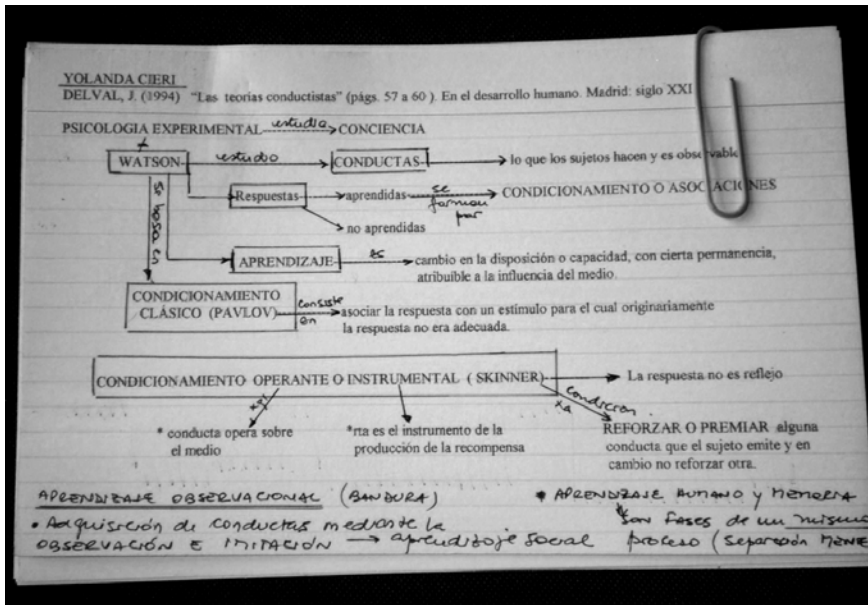 YOLANDA CIERI
DELVAL, J. (1994) "Las teorías conductistas" (págs. 57 a 60 ). En el desarrollo humano. Madrid: siglo XXI
PSICOLOGIA EXPERIMENTAL estudia CONCIENCIA
WATSON estudio CONDUCTAS lo que los sujetos hacen y es observable
Respuestas aprendidas se forman por CONDICIONAMIENTO O ASOCIACIONES
no aprendidas
se basa en
APRENDIZAJE es cambio en la disposición o capacidad, con cierta permanencia,
atribuible a la influencia del medio.
CONDICIONAMIENTO
CLÁSICO (PAVLOV) consiste en asociar la respuesta con un estímulo para el cual originariamente
la respuesta no era adecuada.
CONDICIONAMIENTO OPERANTE O INSTRUMENTAL ( SKINNER) La respuesta no es reflejo
condición
* conducta opera sobre
el medio
*rta es el instrumento de la
producción de la recompensa
REFORZAR O PREMIAR alguna
conducta que el sujeto emite y en
cambio no reforzar otra.
APRENDIZAJE OBSERVACIONAL (BANDURA)
• Adquisición de conductas mediante la
OBSERVACIÓN E IMITACIÓN → aprendizaje social
* APRENDIZAJE HUMANO y MEMORIA
son fases de un mismo
proceso (separación MENE